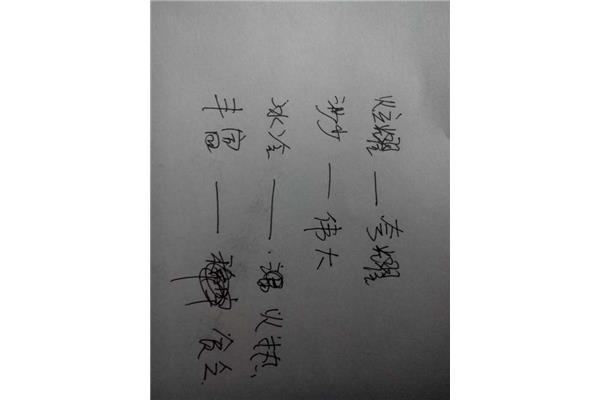 炫耀 — 夸耀
渺小 — 伟大
冰冷 — 火热
丰富 — 贫乏